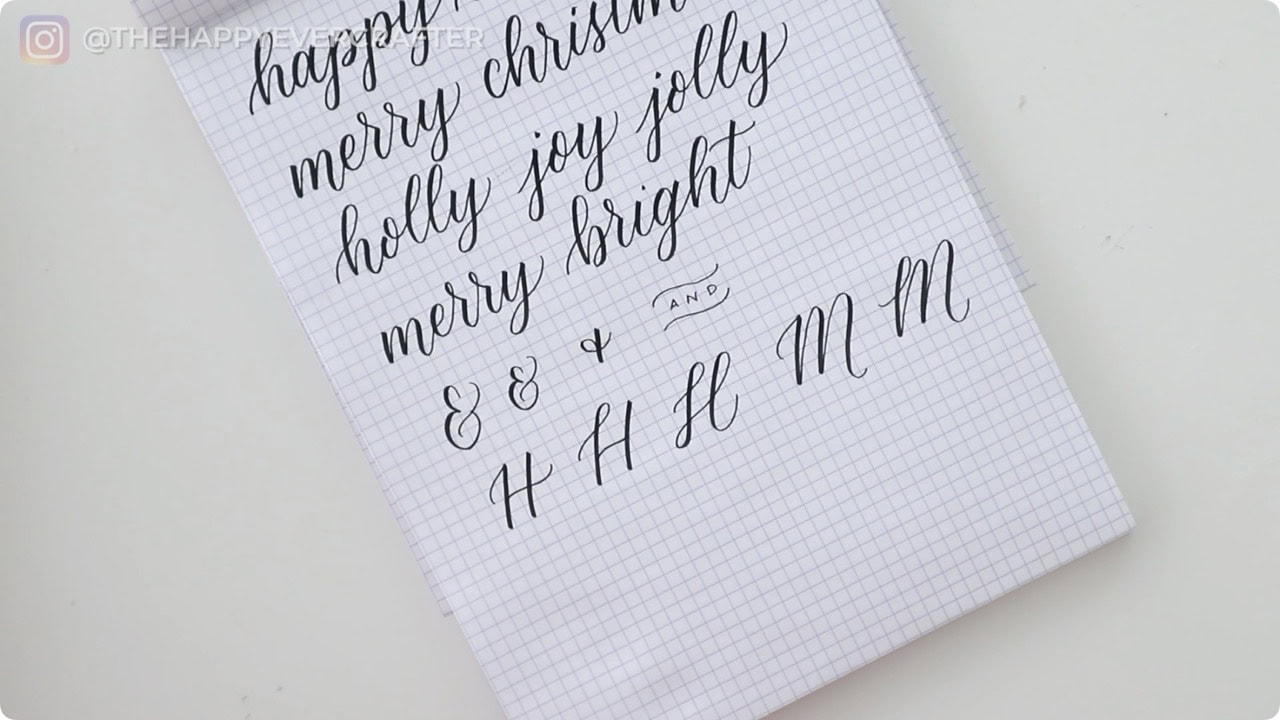 @THEHAPPYEVERCRAFTER
happy
merry
holly joy jolly
merry bright
& & & AND
H H H M M